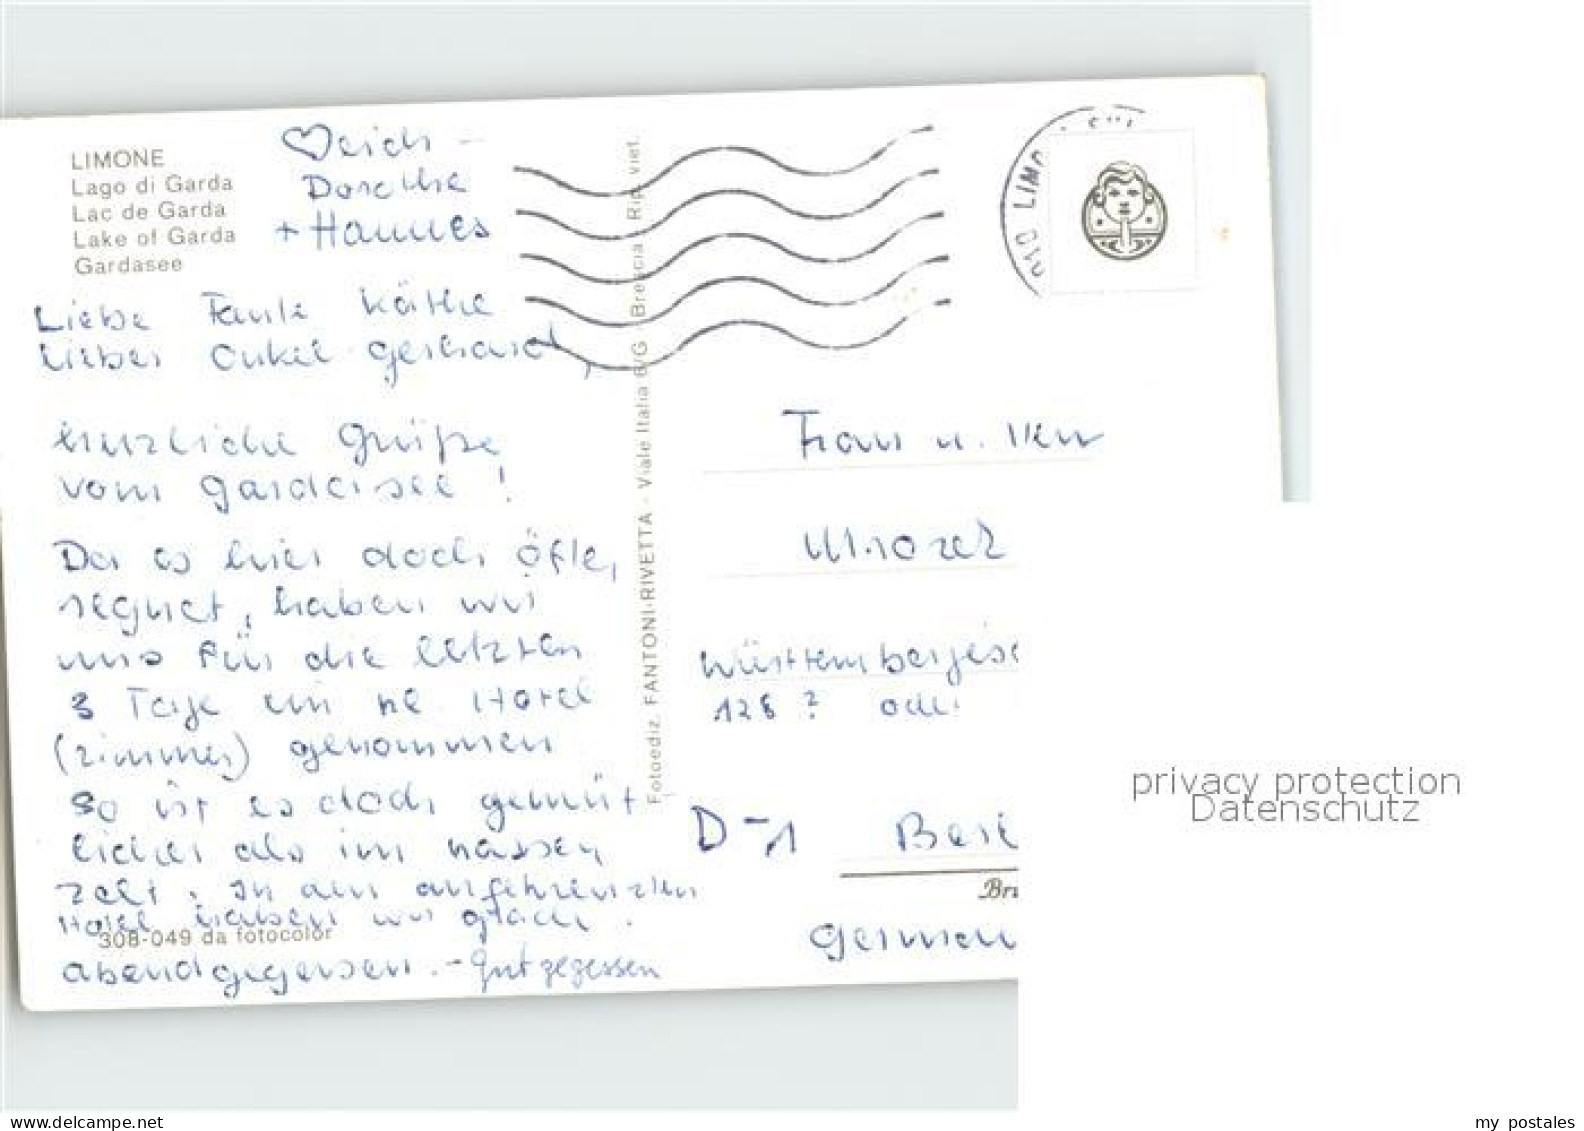 LIMONE
Lago di Garda
Lac de Garda
Lake of Garda
Gardasee
Dorothe
+ Hannes
Liebe Tante Käthe
lieber Onkel Gerhard,
herzliche Grüße
vom Gardasee!
Da es hier doch öfter
regnet, haben wir
uns für die letzten
3 Tage ein ne Hotel
(zimmer) genommen
So ist es doch gemüt
licher als im nassen
Zelt. In dem
Hotel haben wir gleich
abendgegessen. - Gut gegessen
308-049 da fotocolor
Fotoediz. FANTONI-RIVETTA - Viale Italia 6/G - Brescia - Rip. viet.
010 LIMO
Frau u. Herr
Württembergisc
128? oder
D-1 Berl
Germen
privacy protection
Datenschutz
www.delcampe.net
my postales